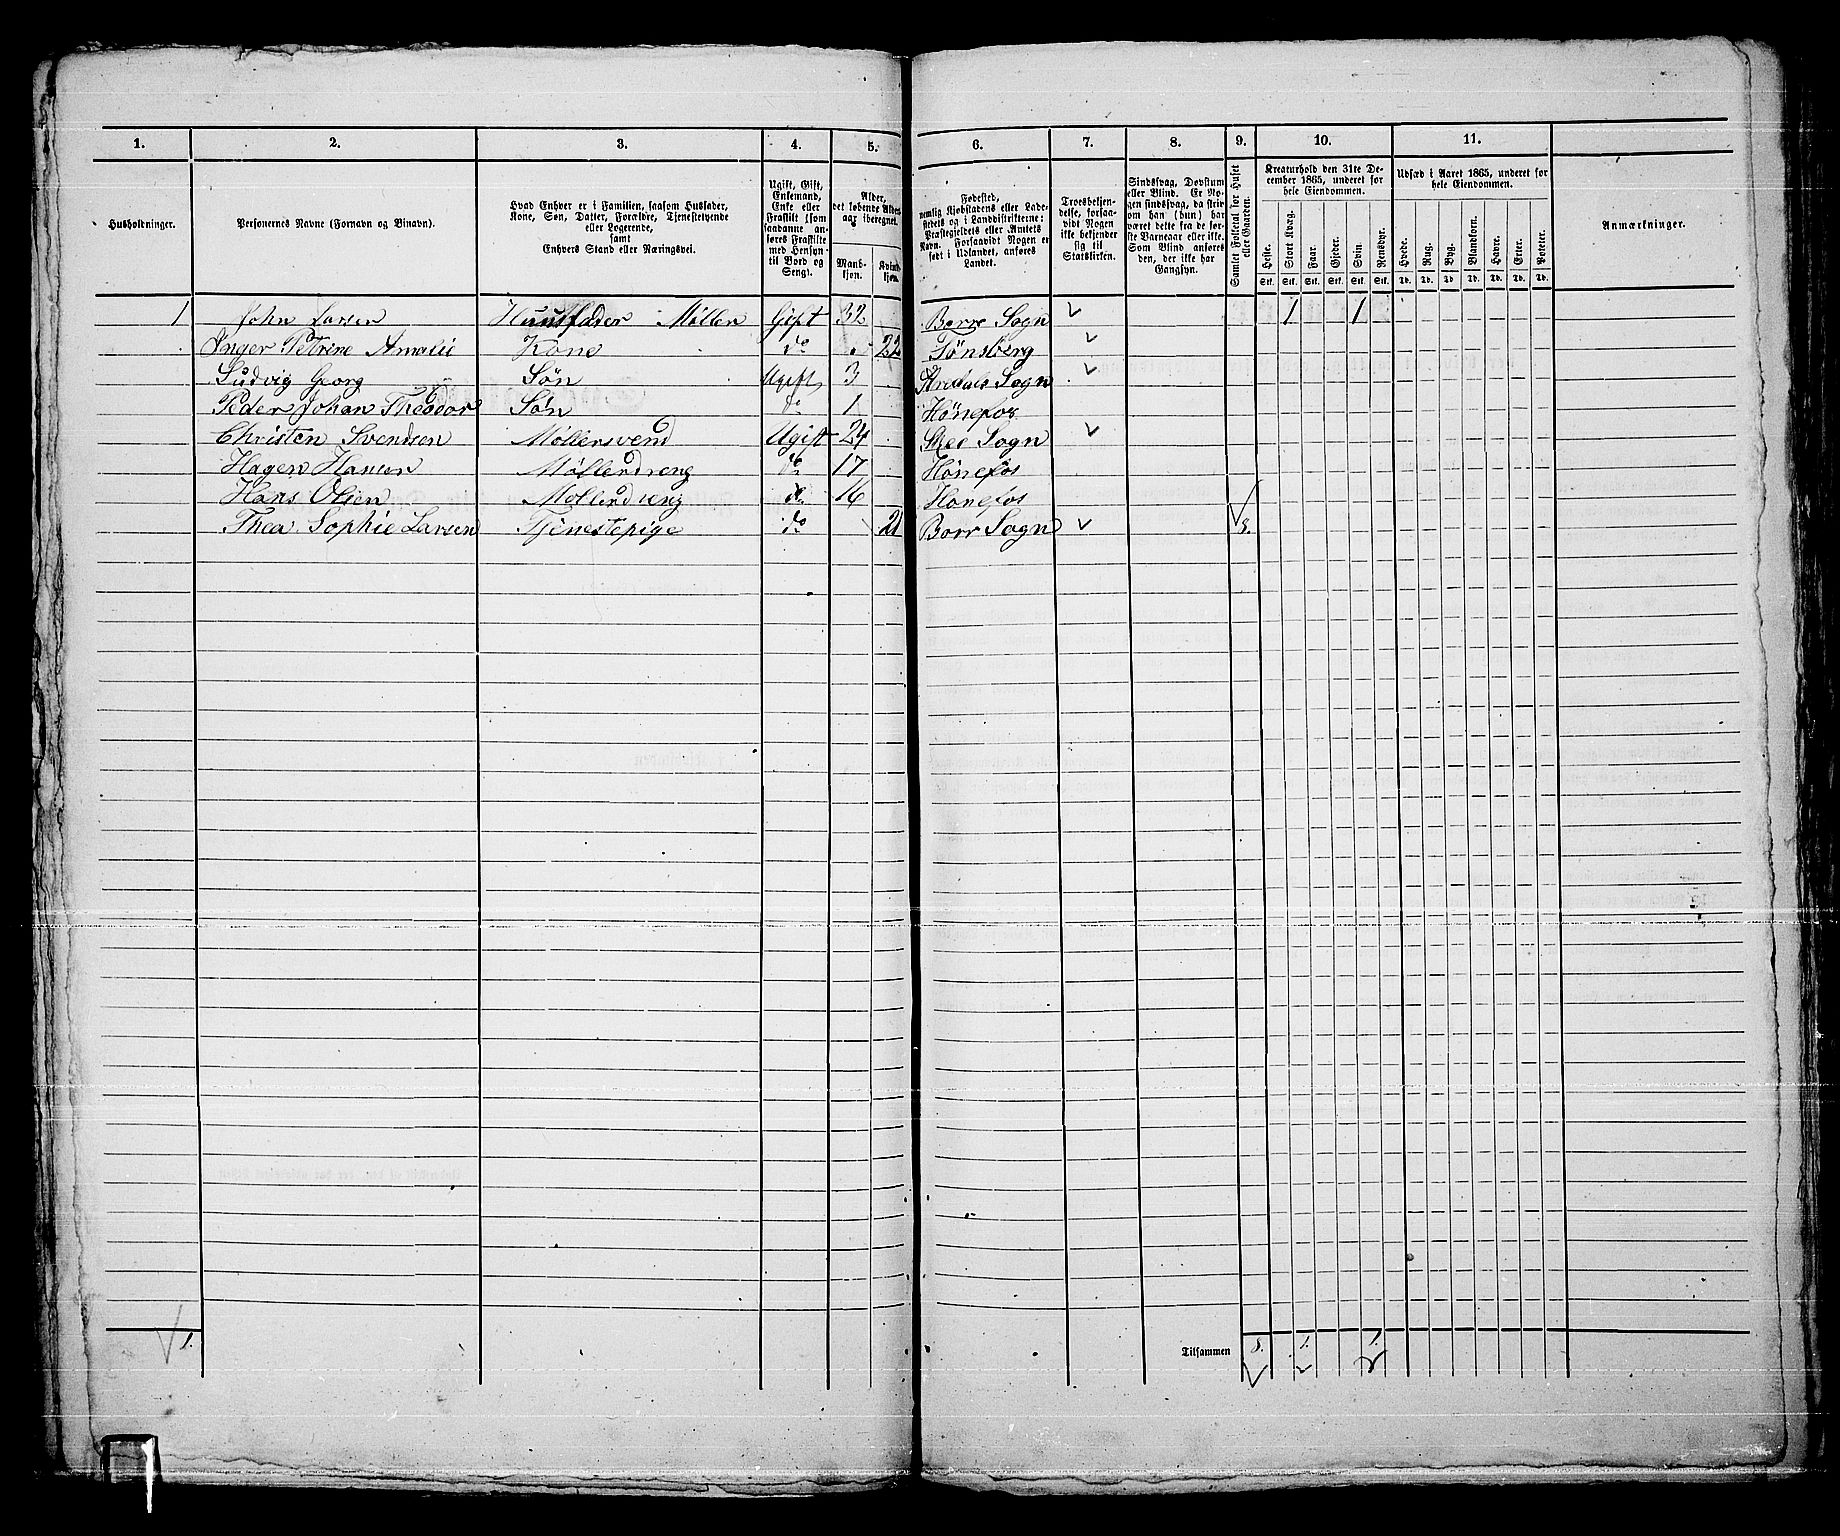 1. 2. 3. 4. 5. 6. 7. 8. 9. 10. 11.
Husholdninger. Personernes Navne (Fornavn og Binavn). Hvad Enhver er i Familien, saasom Husfader, Kone, Søn, Datter, Forældre, Tjenestetyende eller Logerende, samt Enhvers Stand eller Næringsvei. Ugift, Gift, Enkemand, Enke eller Fraskilt (som saadanne anføres Fraskilte med Hensyn til Bord og Seng). Alder, det løbende Alders-aar iberegnet. Mandkjøn. Kvindekjøn. Fødested, nemlig Kjøbstadens eller Ladestedets og i Landdistrikterne: Præstegjeldets eller Amtets Navn. Forsaavidt Nogen er født i Udlandet, anføres Landet. Troesbekjendelse, forsaavidt Nogen ikke bekjender sig til Statskirken. Sindssvag, Døvstum eller Blind. Er Nogen sindssvag, da skriv om han (hun) har været dette fra de første Barneaar eller ikke. Som Blind anføres den, der ikke har Gangsyn. Samlet Folketal for Huset eller Gaarden. Kreaturhold den 31te December 1865, underet for hele Eiendommen. Heste. Stort Kvæg. Faar. Gjeder. Svin. Rensdyr. Udsæd i Aaret 1865, underet for hele Eiendommen. Hvede. Rug. Byg. Blandkorn. Havre. Erter. Poteter. Anmærkninger.
Stk. Stk. Stk. Stk. Stk. Stk. Td. Td. Td. Td. Td. Td. Td.
1 John Larsen Huusfader Møller Gift 32 Borre Sogn 1 1
Inger Petrine Amalie Kone do 22 Tønsberg
Ludvig Georg Søn Ugift 3 Sogn
Peder Johan Theodor Søn do 1 Hönefos
Christen Svendsen Møllersvend Ugift 24 Sogn
Hagen Hansen Møllerdreng do 17 Hönefos
Hans Olsen Møllerdreng do 16 Hönefos
Thea Sophie Larsen Tjenestepige do 21 Borr Sogn 8.
1. Tilsammen 8. 1. 1.